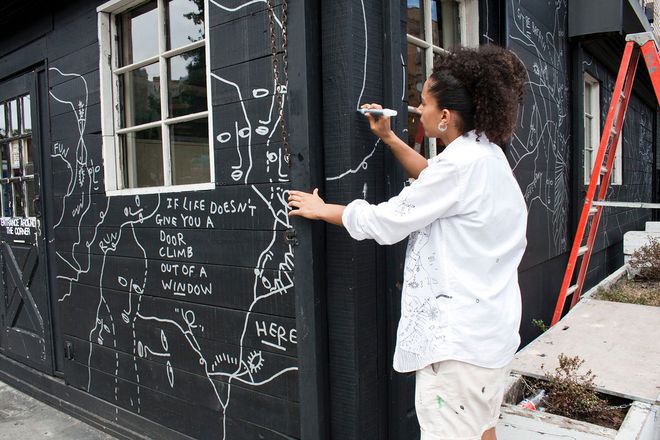 FUN
ENTRANCE AROUND
THE CORNER
RUN
IF LIFE DOESN'T
GIVE YOU A
DOOR
CLIMB
OUT OF A
WINDOW
HERE